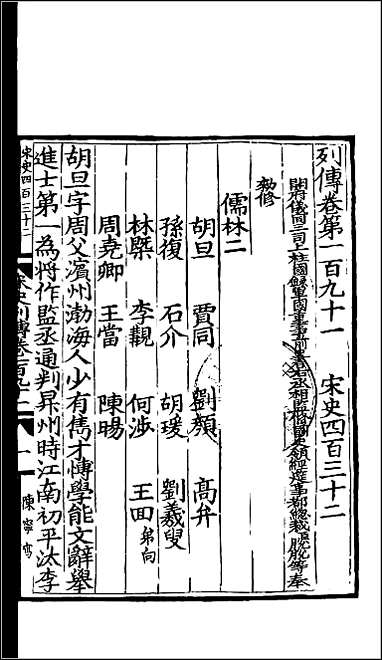 列傳卷第一百九十一　宋史四百三十二
開府儀同三司上柱國錄軍國重事前中書右丞相監修國史領經筵事都總裁脫脫等奉
敕修
儒林二
胡旦　賈同　劉顏　高弁
孫復　石介　胡瑗　劉羲叟
林槩　李覯　何涉　王回弟向
周堯卿　王當　陳暘
胡旦字周父濱州渤海人少有雋才博學能文辭舉
進士第一為將作監丞通判昇州時江南初平汰李
宋史四百三十二
宋史列傳卷一百九十一
一
陳寧寫